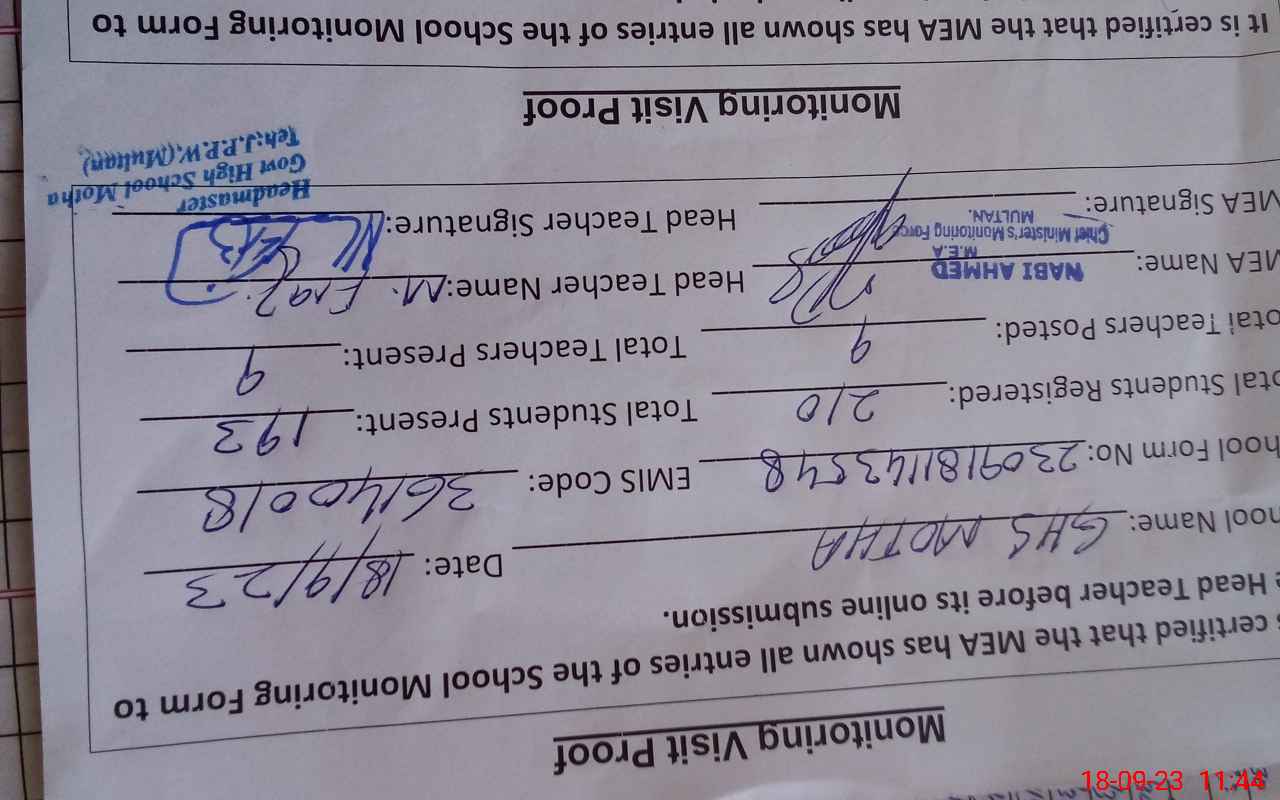 Monitoring Visit Proof
s certified that the MEA has shown all entries of the School Monitoring Form to
e Head Teacher before its online submission.
hool Name: GHS MOTHA Date: 18/9/23
hool Form No: 2309181143548 EMIS Code: 36140018
otal Students Registered: 210 Total Students Present: 193
otal Teachers Posted: 9 Total Teachers Present: 9
MEA Name: Head Teacher Name: M.
NABI AHMED
M.E.A
Chief Minister's Monitoring Force
MULTAN.
MEA Signature: Head Teacher Signature:
Headmaster
Govt High School Motha
Teh:J.P.P.W.(Multan)
Monitoring Visit Proof
It is certified that the MEA has shown all entries of the School Monitoring Form to
18-09-23 11:44